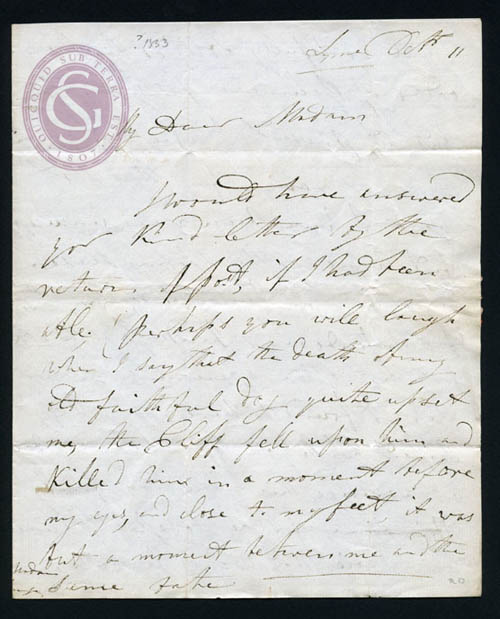 ? 1833
Lyme Octr 11
QUICQUID SUB TERRA EST
GS
1807
My Dear Madam
I would have answered
your kind letter by the
return of post, if I had been
able. Perhaps you will laugh
when I say that the death of my
old faithful dog quite upset
me, the Cliff fell upon him and
killed him in a moment before
my eyes, and close to my feet, it was
but a moment between me and the
same fate